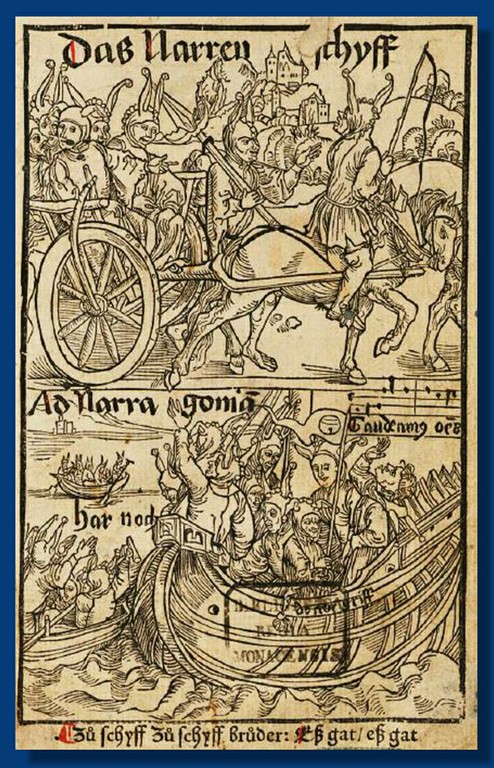 Das Narren schyff
Ad Narragoniā
Gaudeamꝰ oēs
har noch
doctor griff
BIBLIOTHECA
REGIA
MONACENSIS
Zů schyff Zů schyff brůder: Eß gat/ eß gat